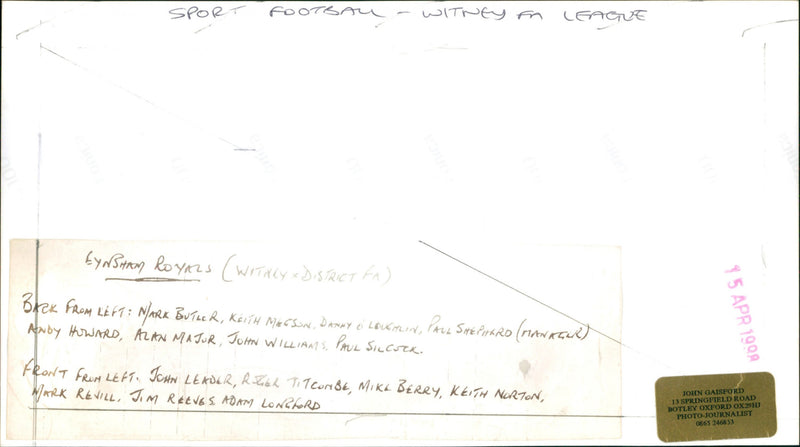 SPORT FOOTBALL - WITNEY FA LEAGUE
EYNSHAM ROYALS (WITNEY & DISTRICT FA)
BACK FROM LEFT: MARK BUTLER, KEITH MEGSON, DANNY O'LOUGHLIN, PAUL SHEPHERD (MANAGER)
ANDY HOWARD, ALAN MAJOR, JOHN WILLIAMS, PAUL SILCOCK.
FRONT FROM LEFT. JOHN LEADER, ROGER TITCOMBE, MIKE BERRY, KEITH NORTON,
MARK REVILL, JIM REEVES ADAM LONGFORD
15 APR 1998
JOHN GAISFORD
13 SPRINGFIELD ROAD
BOTLEY OXFORD OX29HJ
PHOTO-JOURNALIST
0865 246853